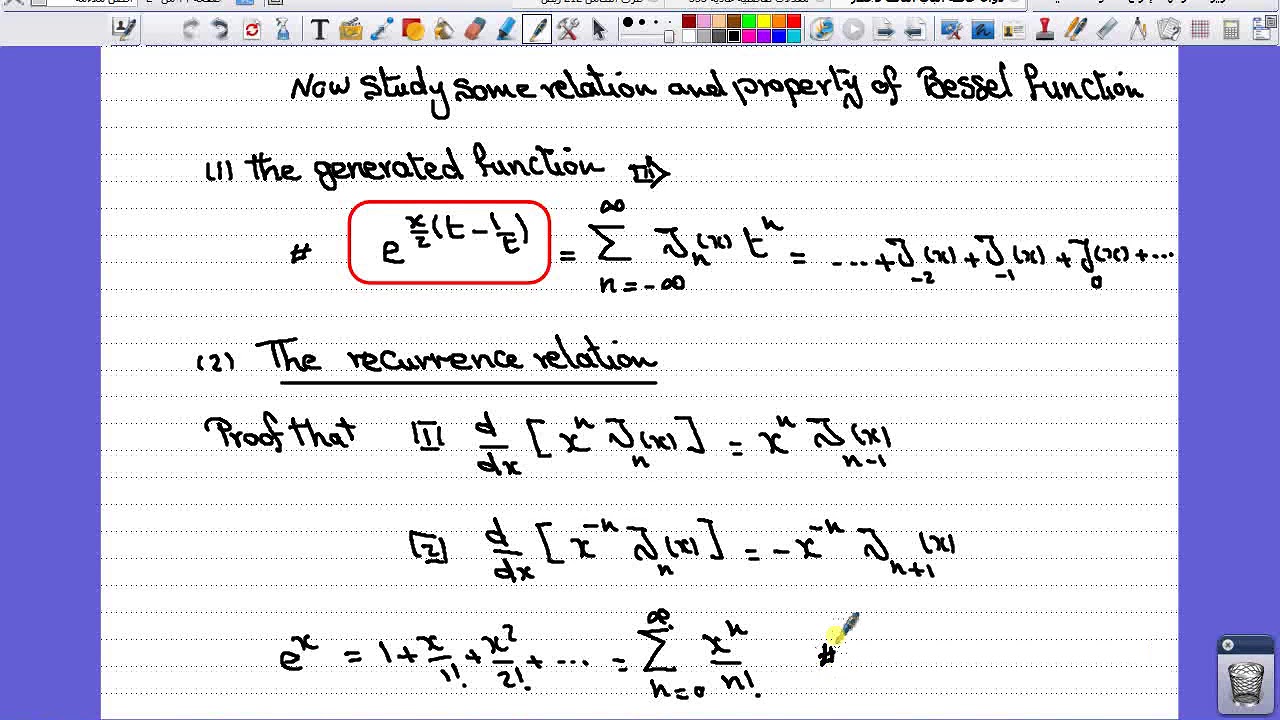 Now study some relation and property of Bessel function
(1) The generated function ⇒
# e^{x/2(t - 1/t)} = ∑_{n=-∞}^{∞} J_n(x) t^n = ... + J_{-2}(x) + J_{-1}(x) + J_0(x) + ...
(2) The recurrence relation
Proof that [1] d/dx [x^n J_n(x)] = x^n J_{n-1}(x)
[2] d/dx [x^{-n} J_n(x)] = -x^{-n} J_{n+1}(x)
e^x = 1 + x/1! + x^2/2! + ... = ∑_{n=0}^{∞} x^n/n! #